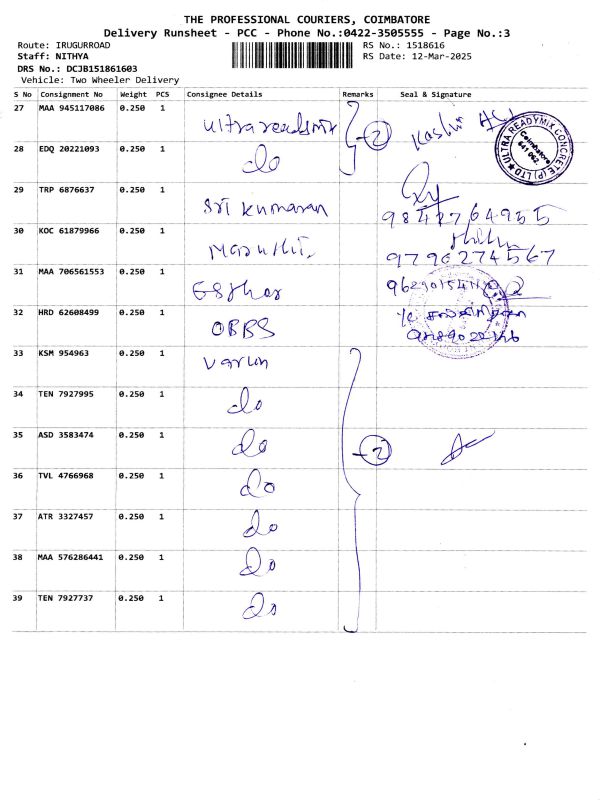 THE PROFESSIONAL COURIERS, COIMBATORE
Delivery Runsheet - PCC - Phone No.:0422-3505555 - Page No.:3
Route: IRUGURROAD
RS No.: 1518616
Staff: NITHYA
RS Date: 12-Mar-2025
DRS No.: DCJB151861603
Vehicle: Two Wheeler Delivery
S No Consignment No Weight PCS Consignee Details Remarks Seal & Signature
27 MAA 945117086 0.250 1 Ultra readymix 2
ULTRA READYMIX CONCRETE (P) LTD
Coimbatore
641 062
28 EDQ 20221093 0.250 1 do
29 TRP 6876637 0.250 1 Sri Kumaran
30 KOC 61879966 0.250 1 Maruthi 9796274567
31 MAA 706561553 0.250 1 Esther
32 HRD 62608499 0.250 1 OBBS
33 KSM 954963 0.250 1 Varun
34 TEN 7927995 0.250 1 do
35 ASD 3583474 0.250 1 do
36 TVL 4766968 0.250 1 do
37 ATR 3327457 0.250 1 do
38 MAA 576286441 0.250 1 do
39 TEN 7927737 0.250 1 do